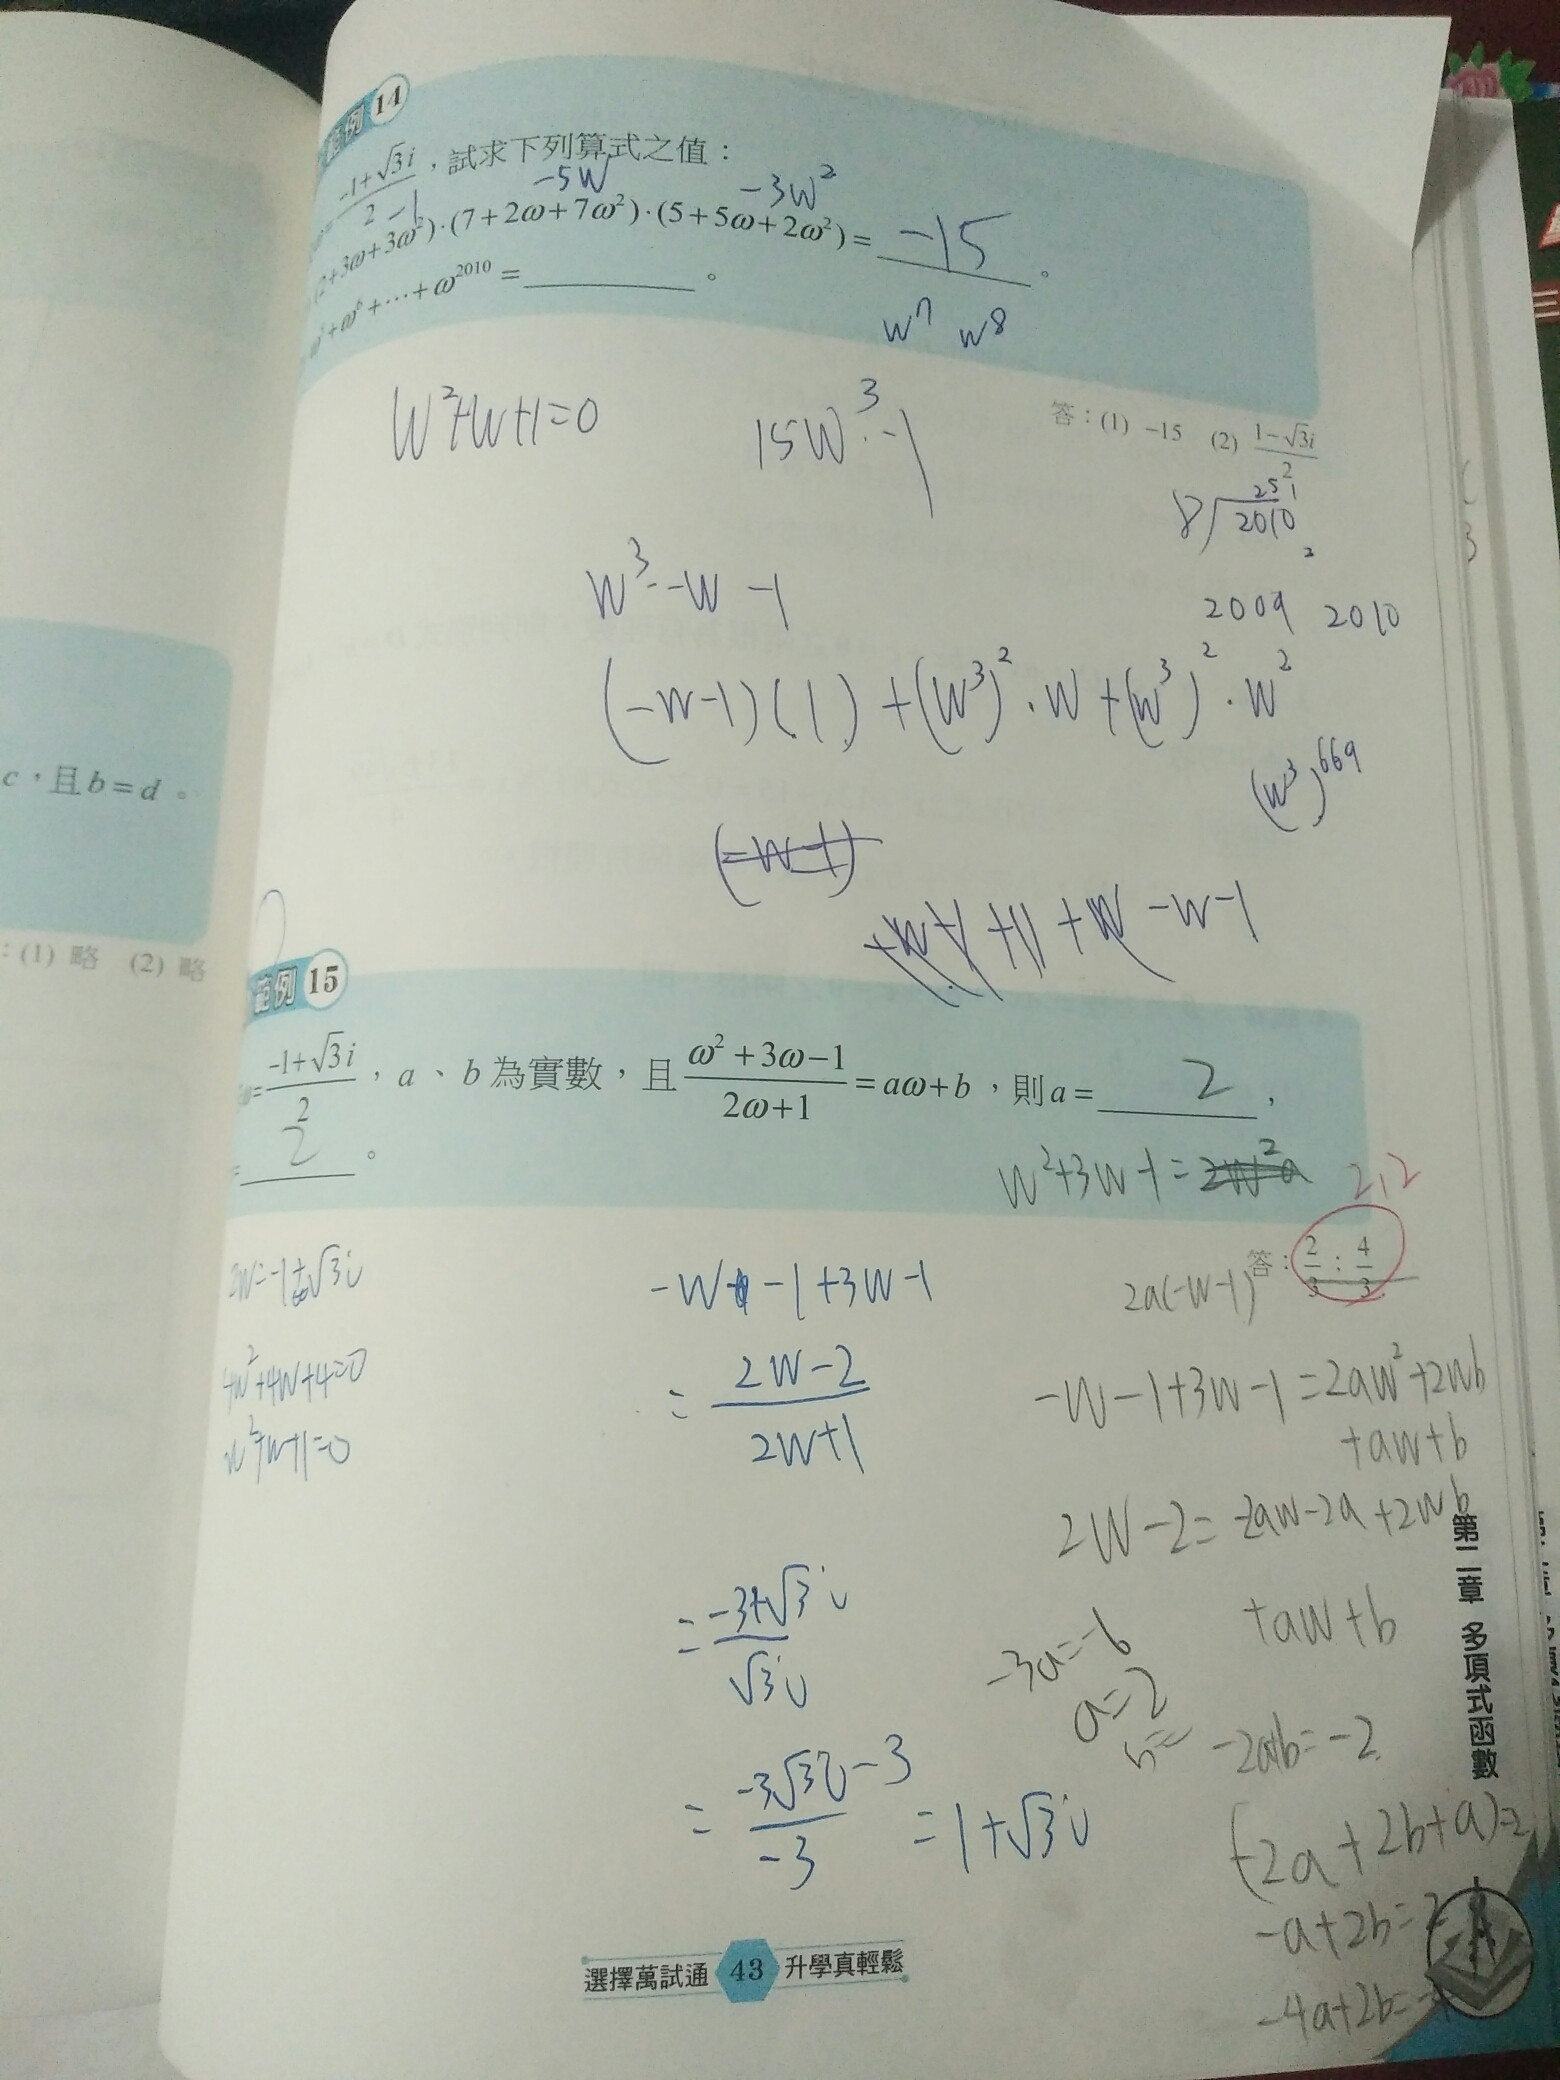 範例 14
ω=\frac{-1+\sqrt{3}i}{2},試求下列算式之值:
-1 -5W -3W^2
(2+3ω+3ω^2)·(7+2ω+7ω^2)·(5+5ω+2ω^2)= -15 。
+ω^6+⋯+ω^{2010} = ______ 。
W^7 W^8
答:(1) -15 (2) \frac{1-\sqrt{3}i}{2}
W^2+W+1=0
15W^3·-1
251
8 2010
2
W^3·-W-1
2009 2010
(-W-1)(1)+(W^3)^2·W+(W^3)^2·W^2
(W^3)^{669}
(-W-1)
-W-1
c,且b=d。
:(1) 略 (2) 略
範例 15
ω=\frac{-1+\sqrt{3}i}{2},a、b為實數,且\frac{ω^2+3ω-1}{2ω+1}=aω+b,則a= 2 ,
= 2 。
W^2+3W-1=2W^2a
2,2
答:\frac{2}{3};\frac{4}{3}
2W=-1+\sqrt{3}i
4W^2+4W+4=0
W^2+W+1=0
-W-1+3W-1
=\frac{2W-2}{2W+1}
=\frac{-3+\sqrt{3}i}{\sqrt{3}i}
=\frac{-3\sqrt{3}i-3}{-3}=1+\sqrt{3}i
2a(-W-1)
-W-1+3W-1=2aW^2+2Wb
+aW+b
2W-2=-2aW-2a+2Wb
+aW+b
-3a=-6
a=2
b=
-2a+b=-2
(-2a+2b+a)=2
-a+2b=2
-4a+2b=-4
第二章 多項式函數
選擇萬試通 43 升學真輕鬆